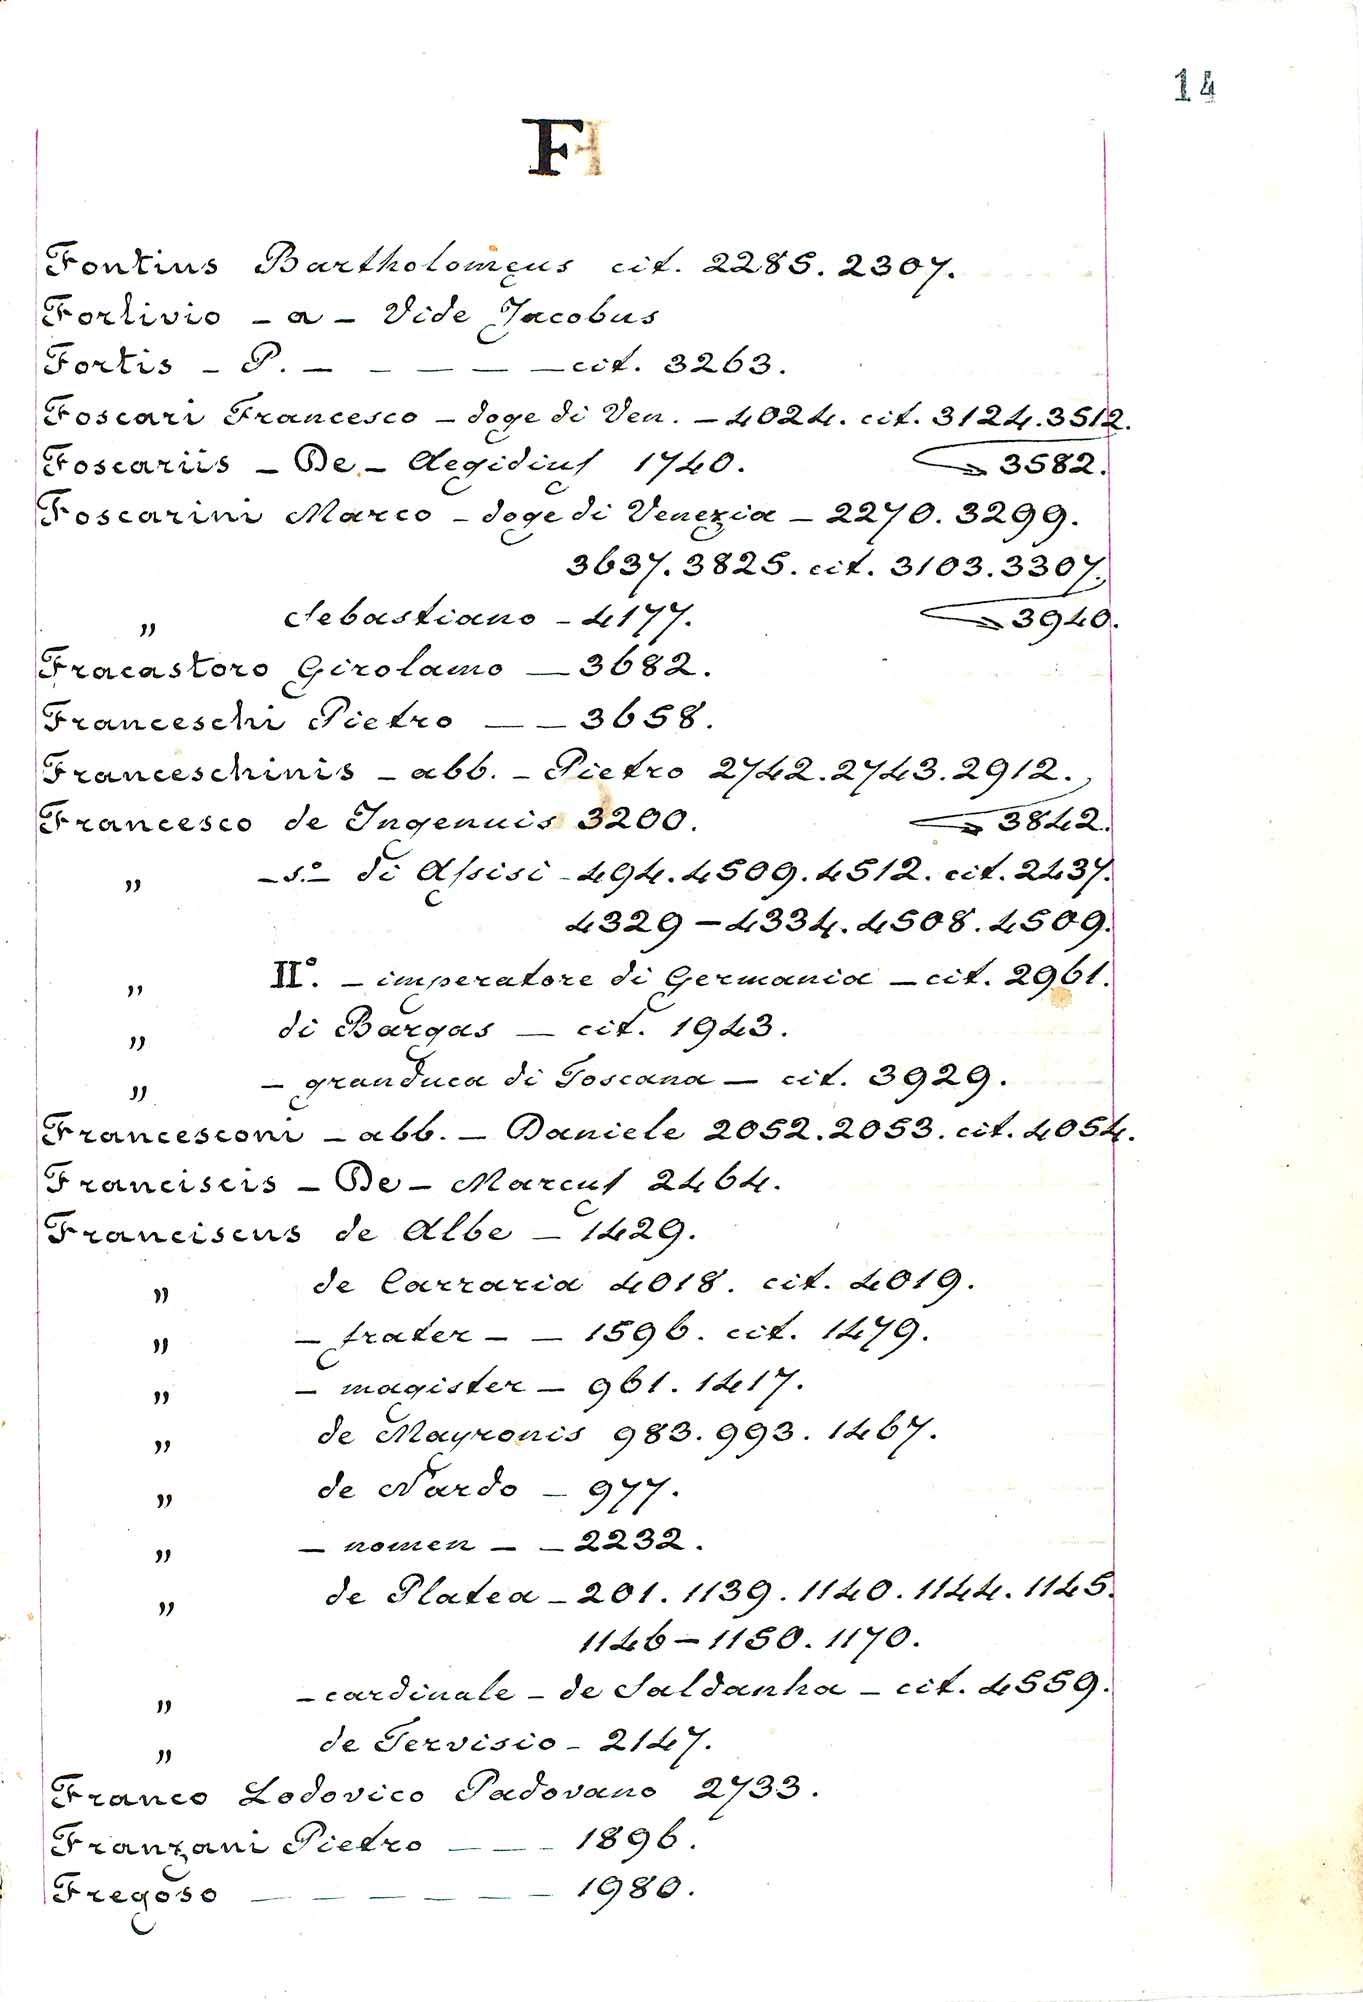 14
F
Fontius Bartholomęus cit. 2285. 2307.
Forlivio – a – Vide Jacobus
Fortis – P. – – – – – cit. 3263.
Foscari Francesco – doge di Ven. – 4024. cit. 3124. 3512.
Foscariis – De – Aegidiuſ 1740. 3582.
Foscarini Marco – doge di Venezia – 2270. 3299.
3637. 3825. cit. 3103. 3307.
„ Sebastiano – 4177. 3940.
Fracastoro Girolamo – 3682.
Franceschi Pietro – – 3658.
Franceschinis – abb. – Pietro 2742. 2743. 2912.
Francesco de Ingenuis 3200. 3842.
„ – s.º – di Aſsisi – 494. 4509. 4512. cit. 2437.
4329 – 4334. 4508. 4509.
„ IIº. – imperatore di Germania – cit. 2961.
„ di Bargas – cit. 1943.
„ – granduca di Toscana – cit. 3929.
Francesconi – abb. – Daniele 2052. 2053. cit. 4054.
Franciscis – De – Marcuſ 2464.
Franciscus de Albe – 1429.
„ de Carraria 4018. cit. 4019.
„ – frater – – 1596. cit. 1479.
„ – magister – 961. 1417.
„ de Mayronis 983. 993. 1467.
„ de Nardo – 977.
„ – nomen – – 2232.
„ de Platea – 201. 1139. 1140. 1144. 1145.
1146 – 1150. 1170.
„ – cardinale – de Saldanha – cit. 4559.
„ de Tervisio – 2147.
Franco Lodovico Padovano 2733.
Franzani Pietro – – – 1896.
Fregoso – – – – – – 1980.